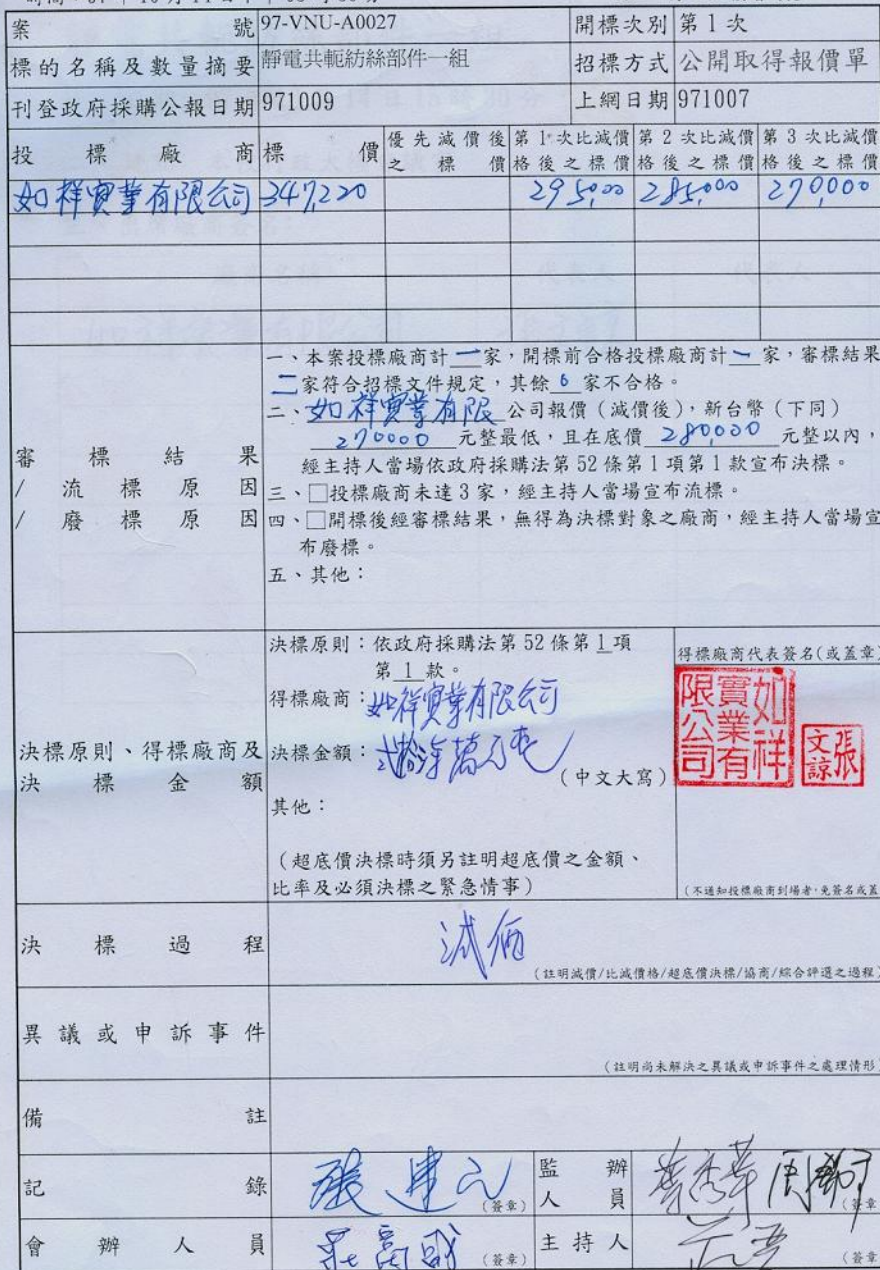 案號 97-VNU-A0027 開標次別 第 1 次
標的名稱及數量摘要 靜電共軛紡絲部件一組 招標方式 公開取得報價單
刊登政府採購公報日期 971009 上網日期 971007
投標廠商 標價 優先減價後之標價 第 1 次比減價格後之標價 第 2 次比減價格後之標價 第 3 次比減價格後之標價
如祥實業有限公司 347,220 295,000 285,000 270,000
審標結果
/流標原因
/廢標原因
一、本案投標廠商計 一 家,開標前合格投標廠商計 一 家,審標結果
二家符合招標文件規定,其餘 0 家不合格。
二、如祥實業有限 公司報價(減價後),新台幣(下同)
270000 元整最低,且在底價 280,000 元整以內,
經主持人當場依政府採購法第 52 條第 1 項第 1 款宣布決標。
三、□投標廠商未達 3 家,經主持人當場宣布流標。
四、□開標後經審標結果,無得為決標對象之廠商,經主持人當場宣
布廢標。
五、其他:
決標原則、得標廠商及
決標金額
決標原則:依政府採購法第 52 條第 1 項
第 1 款。
得標廠商:如祥實業有限公司
決標金額:貳拾柒萬元整
(中文大寫)
其他:
(超底價決標時須另註明超底價之金額、
比率及必須決標之緊急情事)
得標廠商代表簽名(或蓋章)
如祥
實業有
限公司
張
文諒
(不通知投標廠商到場者,免簽名或蓋
決標過程 減價
(註明減價/比減價格/超底價決標/協商/綜合評選之過程)
異議或申訴事件
(註明尚未解決之異議或申訴事件之處理情形)
備註
記錄 張建之 (簽章) 監辦人員 (簽章
會辦人員 (簽章) 主持人 (簽章